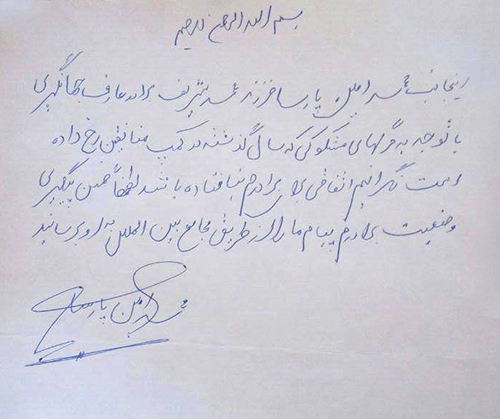 بسم الله الرحمن الرحیم
اینجانب محمد امین پارسا فرزند محمد شریف برادر عارف جهانگیری
با توجه به مرگهای مشکوکی که سال گذشته در کمپ منافقین رخ داده
است نگرانیم اتفاقی برای برادرم نیافتاده باشد لطفاً ضمن پیگیری
وضعیت برادرم پیام ما را از طریق مجامع بین المللی به او برسانید
محمد امین پارسا